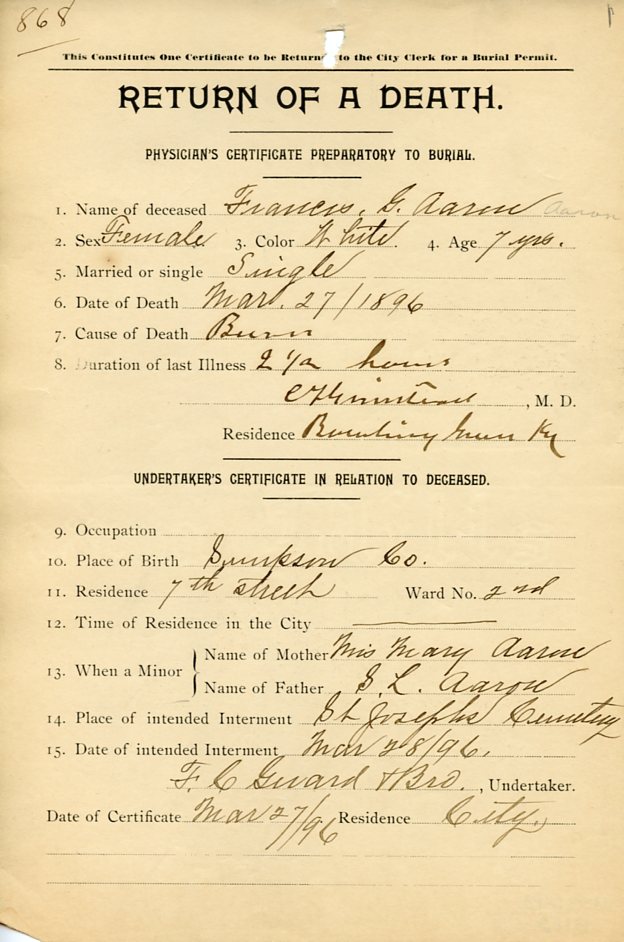 868
This Constitutes One Certificate to be Returned to the City Clerk for a Burial Permit.
RETURN OF A DEATH.
PHYSICIAN'S CERTIFICATE PREPARATORY TO BURIAL.
1. Name of deceased Francis. G. Aaron Aaron
2. Sex Female 3. Color White. 4. Age 7 yrs.
5. Married or single Single
6. Date of Death Mar. 27/1896
7. Cause of Death Burn
8. Duration of last Illness 2 1/2 hours
, M. D.
Residence Bowling Green Ky
UNDERTAKER'S CERTIFICATE IN RELATION TO DECEASED.
9. Occupation
10. Place of Birth Simpson Co.
11. Residence 7th street Ward No. 2nd
12. Time of Residence in the City
13. When a Minor Name of Mother Mis Mary Aaron
Name of Father S. L. Aaron
14. Place of intended Interment St Josephs Cemetery
15. Date of intended Interment Mar 28/96.
F. C Gerard & Bro. , Undertaker.
Date of Certificate Mar 27/96 Residence City.